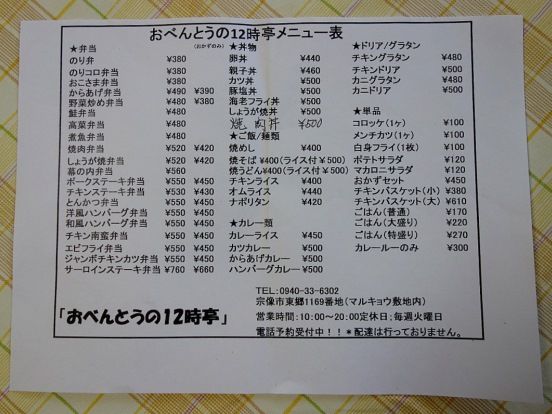 おべんとうの12時亭メニュー表
★弁当 (おかずのみ)
のり弁 ¥380
のりコロ弁当 ¥380
おこさま弁当 ¥380
からあげ弁当 ¥490 ¥390
野菜炒め弁当 ¥480 ¥380
鮭弁当 ¥480
高菜弁当 ¥480
煮魚弁当 ¥480
焼肉弁当 ¥520 ¥420
しょうが焼弁当 ¥520 ¥420
幕の内弁当 ¥560
ポークステーキ弁当 ¥550 ¥450
チキンステーキ弁当 ¥530 ¥430
とんかつ弁当 ¥550 ¥450
洋風ハンバーグ弁当 ¥550 ¥450
和風ハンバーグ弁当 ¥550 ¥450
チキン南蛮弁当 ¥550 ¥450
エビフライ弁当 ¥550 ¥450
ジャンボチキンカツ弁当 ¥550 ¥450
サーロインステーキ弁当 ¥760 ¥660
★丼物
卵丼 ¥440
親子丼 ¥460
カツ丼 ¥500
豚塩丼 ¥500
海老フライ丼 ¥500
しょうが焼丼 ¥500
焼肉丼 ¥500
★ご飯/麺類
焼めし ¥400
焼そば ¥400(ライス付¥500)
焼うどん¥400(ライス付¥500)
チキンライス ¥400
オムライス ¥440
ナポリタン ¥420
★カレー類
カレーライス ¥450
カツカレー ¥500
からあげカレー ¥500
ハンバーグカレー ¥500
★ドリア/グラタン
チキングラタン ¥480
チキンドリア ¥500
カニグラタン ¥480
カニドリア ¥500
★単品
コロッケ(1ヶ) ¥100
メンチカツ(1ヶ) ¥100
白身フライ(1枚) ¥100
ポテトサラダ ¥120
マカロニサラダ ¥120
おかずセット ¥450
チキンバスケット(小) ¥380
チキンバスケット(大) ¥610
ごはん(普通) ¥170
ごはん(大盛り) ¥220
ごはん(特盛り) ¥270
カレールーのみ ¥300
「おべんとうの12時亭」
TEL:0940-33-6302
宗像市東郷1169番地(マルキョウ敷地内)
営業時間:10:00~20:00定休日;毎週火曜日
電話予約受付中!!*配達は行っておりません。